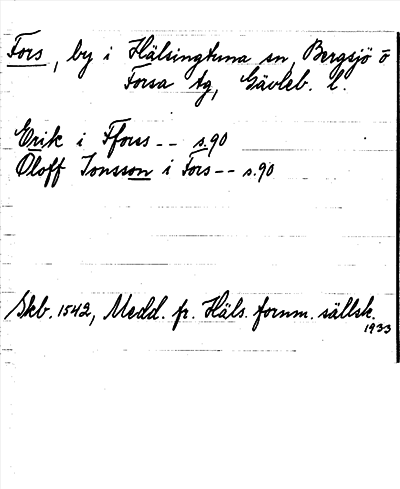 Fors, by i Hälsingtuna sn, Bergsjö o
Forsa tg, Gävleb. l.
Erik i Ffors -- s.90
Oloff Jonsson i Fors -- s.90
Skb. 1542, Medd. fr. Häls. fornm. sällsk.
1933